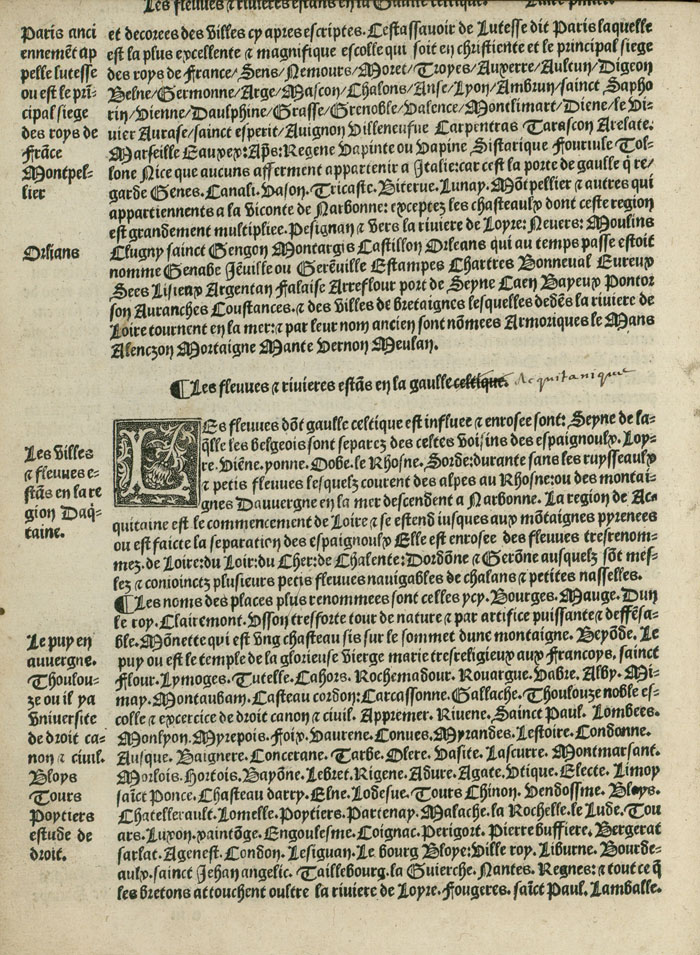 Les fleuves & rivieres estans en la Gaule celtique.
Paris anci
ennemēt ap
pelle lutesse
ou est le prī-
cipal siege
des roys de
frāce
Montpel-
lier
Orlians
et decorees des villes cy apres escriptes. Cestassavoir de Lutesse dit Paris laquelle
est la plus excellente & magnifique escolle qui soit en christiente et le principal siege
des roys de France/Sens/Nemours/Moret/Troyes/Auxerre/Aulcun/Digeon
Belne/Germonne/Arge/Mascon/Chalons/Anse/Lyon/Ambrun/sainct Sapho
rin/Vienne/Daulphine/Grasse/Grenoble/Valence/Montlimart/Diene/le Vi-
vier Aurase/sainct esperit/Avignon Villeneufue Carpentras Tarascon Arelate:
Marseille Eauxex: Aps: Regene Vapinte ou Vapine Sistarique Fourivle Tol-
lone Nice que aucuns afferment appartenir a Italie: car cest la porte de gaulle q̄ re/
garde Genes. Canali. Vason. Tricaste. Biterue. Lunay. Mōtpellier & autres qui
appartiennents a la viconte de Narbonne: exceptez les chasteaulx dont ceste region
est grandement multipliee. Pesignan & vers la riviere de Loyre: Nevers: Moulins
Clugny sainct Gengon Montargis Castillon Orleans qui au temps passe estoit
nomme Genabe Jēville ou Gerēville Estampes Chartres Bonneval Eureux
Sees Lisieux Argentan Falaise Arreflour port de Seyne Caen Bayeux Pontor
son Auranches Coustances. & des villes de bretaignes lesquelles dedēs la riviere de
Loire tournent en la mer: & par leur nom ancien sont nōmees Armoriques le Mans
Alenczon Mortaigne Mante Vernon Meulan.
¶Les fleuves & rivieres estās en la gaulle celtique. Acquitanique
Les villes
& fleuves e-
stās en la re
gion Daq̄-
taine.
LEs fleuves dōt gaulle celtique est influee & enrosee sont: Seyne de la-
q̄lle les belgeois sont separez des celtes voisins des espaignoulx. Loy-
re. Viēne. yonne. Dobe. le Rhosne. Sorde: durante sans les ruysseaulx
& petis fleuves lesquelz courent des alpes au Rhosne: ou des montai-
gnes Dauvergne en la mer descendent a Narbonne. La region de Ac-
quitaine est le commencement de Loire & se estend iusques aux mōtaignes pyrenees
ou est faicte la separation des espaignoulx Elle est enrosee des fleuves tresrenom-
mez. de Loire: du Loir: du Cher: de Chalente: Dordōne & Gerōne ausquelz sōt mes-
lez & conioinctz plusieurs petis fleuves navigables de chalans & petites nasselles.
Le puy en
auvergne.
Thoulou-
ze ou il ya
université
de droit ca-
non & civil.
Bloys
Tours
Poytiers
estude de
droit.
¶Les noms des places plus renommees sont celles ycy. Bourges. Mauge. Dun
le roy. Clairemont. Usson tresforte tour de nature & par artifice puissante & deffēsa-
ble. Mōnette qui est ung chasteau sis sur le sommet dune montaigne. Beyōde. Le
puy ou est le temple de la glorieuse vierge marie tresreligieux aux Francoys. sainct
Flour. Lymoges. Tutelle. Cahors. Rochemadour. Rouargue. Vabre. Alby. Mi-
may. Montaubam. Casteau cordon: Carcassonne. Gallache. Thoulouze noble es-
colle & exercice de droit canon & civil. Appremer. Riuene. Sainct Paul. Lombees.
Monlyon. Myrepois. Foix. Vaurene. Conues. Myrandes. Lestoire. Condonne.
Ausque. Baignere. Concerane. Tarbe. Olere. Vasite. Lascurre. Montmarsant.
Morlois. Hortois. Bayōne. Lebret. Rigene. Adure. Agate. Utique. Electe. Limoy
saīct Ponce. Chasteau darry. Elne. Lodesue. Tours Chinon. Vendosme. Bloys.
Chatellerault. Lomelle. Poytiers. Partenay. Malache. la Rochelle. le Lude. Tou
ars. Luxon. xaintōge. Engoulesme. Coignac. Perigort. Pierre buffiere. Bergerat
sarlat. Agenest. Condon. Lesiguan. Le bourg Bloye: Ville roy. Liburne. Bourde-
aulx. sainct Jehan angelic. Taillebourg. la Guierche. Nantes. Regnes: & tout ce q̄
les bretons attouchent oultre la riviere de Loyre. Fougeres. saīct Paul. Lamballe.